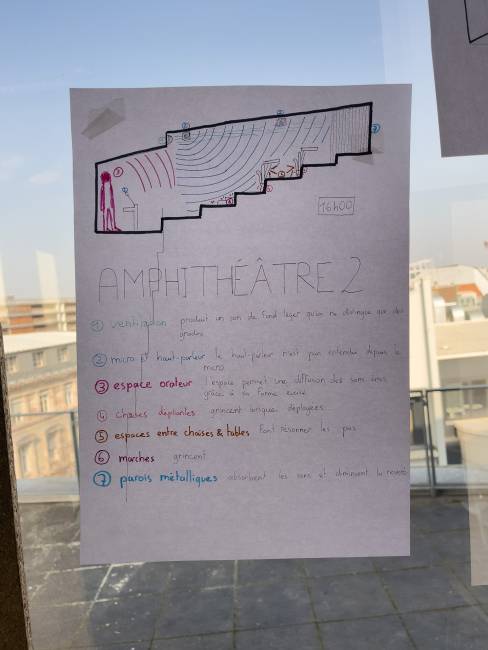 16h00
AMPHITHÉÂTRE 2
① ventilation produit un son de fond léger qu'on ne distingue que des
gradins
② micro et haut-parleur le haut-parleur n'est pas entendu depuis le
micro
③ espace orateur l'espace permet une diffusion des sons émis
grâce à sa forme évasée
④ chaises dépliantes grincent lorsque déployées
⑤ espaces entre chaises & tables font résonner les pas
⑥ marches grincent
⑦ parois métalliques absorbent les sons et diminuent la réverb